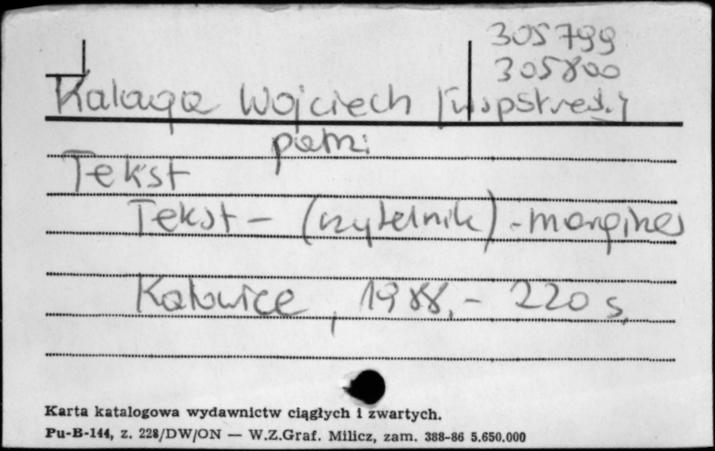 305799
305800
Kalaga Wojciech [współred.]
patrz
Tekst
Tekst - (czytelnik) - margines
Katowice, 1988, - 220 s.
Karta katalogowa wydawnictw ciągłych i zwartych.
Pu-B-144, z. 228/DW/ON — W.Z.Graf. Milicz, zam. 388-86 5.650.000